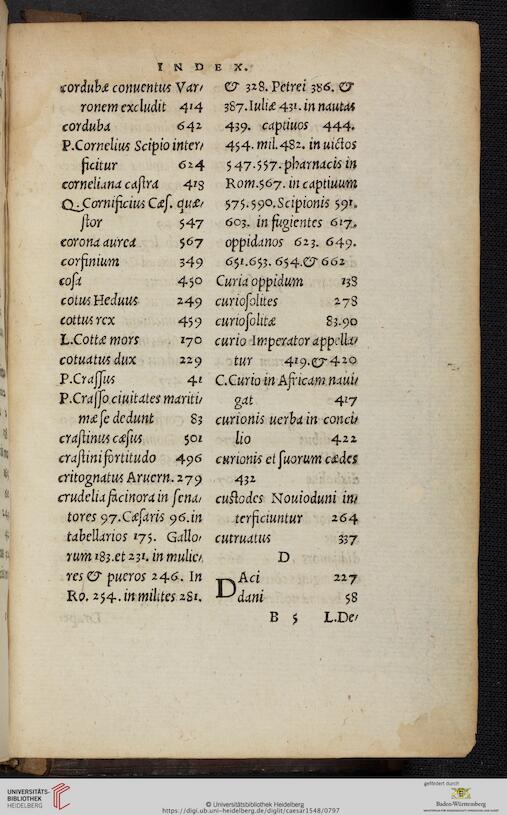 INDEX.
cordubæ conuentus Var⸗
ronem excludit 414
corduba 642
P.Cornelius Scipio inter⸗
ficitur 624
corneliana caſtra 418
Q. Cornificius Cæſ. quæ⸗
ſtor 547
corona aurea 567
corfinium 349
coſa 450
cotus Heduus 249
cottus rex 459
L.Cottæ mors 170
cotuatus dux 229
P.Craſſus 41
P.Craſſo ciuitates mariti⸗
mæ ſe dedunt 83
craſtinus cæſus 501
craſtini fortitudo 496
critognatus Aruern. 279
crudelia facinora in ſena⸗
tores 97. Cæſaris 96. in
tabellarios 175. Gallo⸗
rum 183. et 231. in mulie⸗
res & pueros 246. In
Ro. 254. in milites 281.
& 328. Petrei 386. &
387. Iuliæ 431. in nautas
439. captiuos 444.
454. mil. 482. in uictos
547. 557. pharnacis in
Rom. 567. in captiuum
575. 590. Scipionis 591.
603. in fugientes 617.
oppidanos 623. 649.
651. 653. 654. & 662
Curia oppidum 138
curioſolites 278
curioſolitæ 83.90
curio Imperator appella⸗
tur 419. & 420
C.Curio in Africam naui⸗
gat 417
curionis uerba in conci⸗
lio 422
curionis et ſuorum cædes
432
cuſtodes Nouioduni in⸗
terficiuntur 264
cutruatus 337
D
DAci 227
dani 58
B 5 L.De⸗
UNIVERSITÄTS-
BIBLIOTHEK
HEIDELBERG
© Universitätsbibliothek Heidelberg
https://digi.ub.uni-heidelberg.de/diglit/caesar1548/0797
gefördert durch
Baden-Württemberg